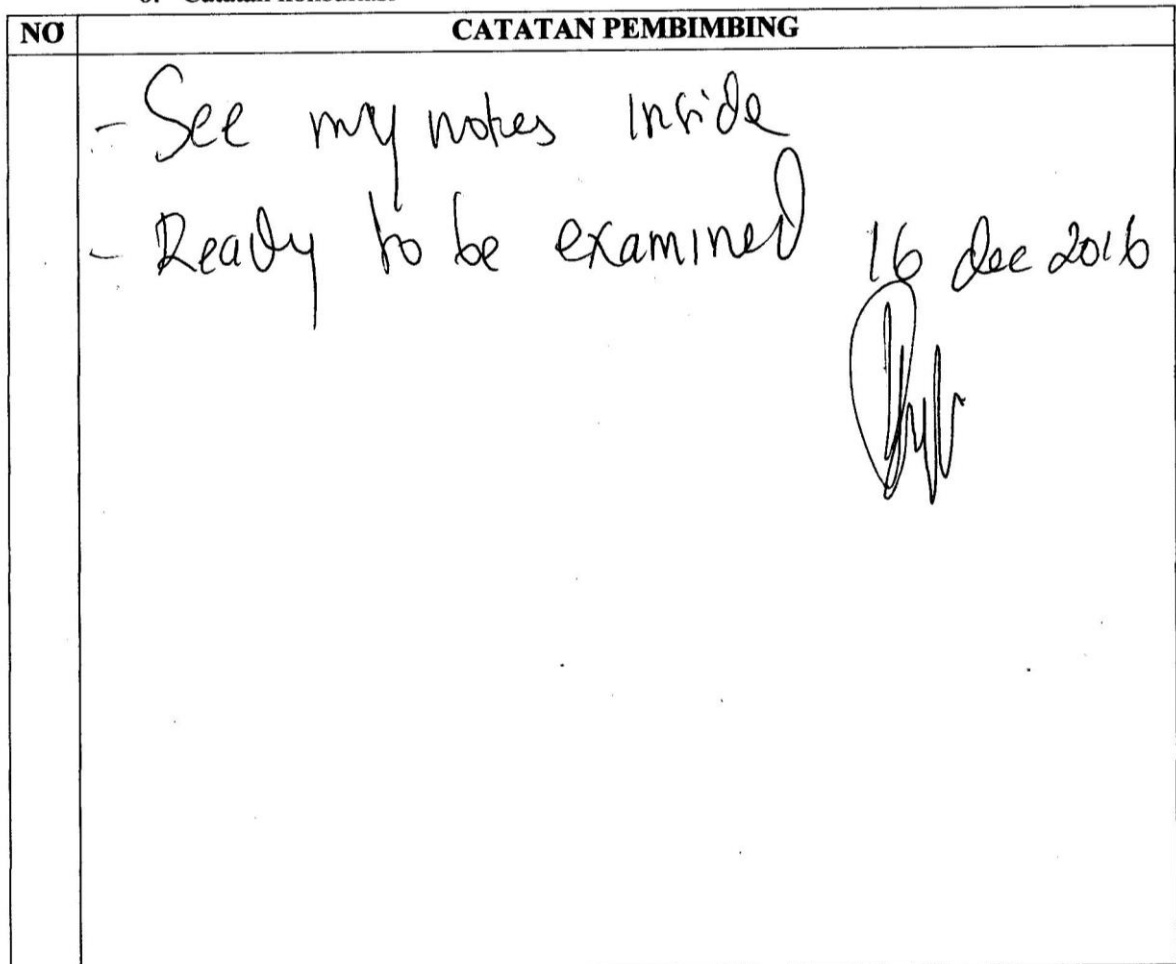 NO CATATAN PEMBIMBING
- See my notes inside
- Ready to be examined 16 dec 2016